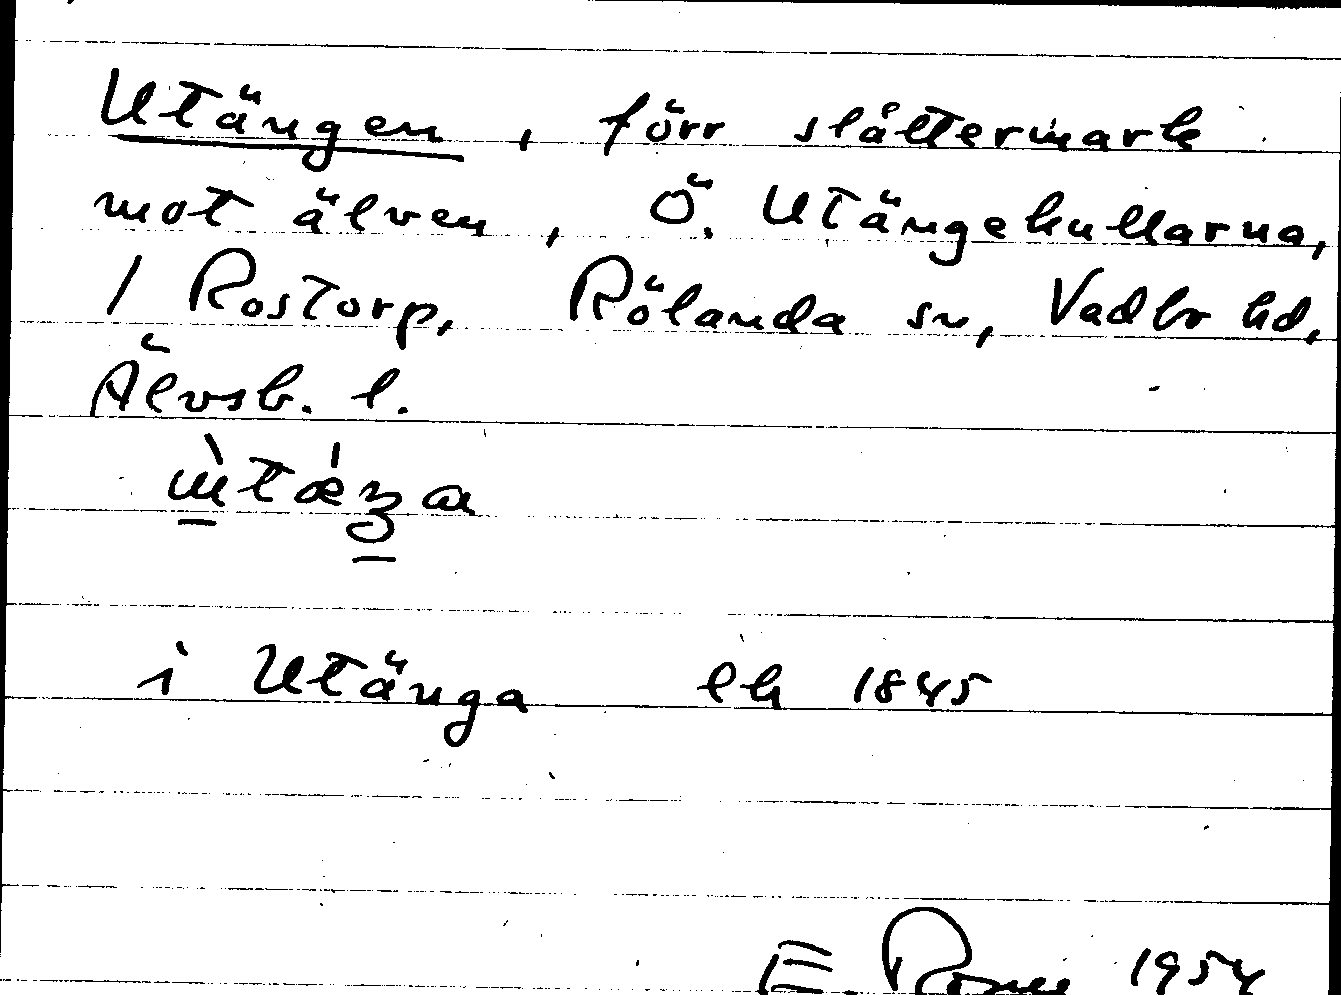 Utängen, förr slåttermark
mot älven, Ö. Utängekullarna,
1 Rostorp, Rölanda sn, Vadbo hd,
Älvsb. l.
i Utänga lh 1845
E. 1954